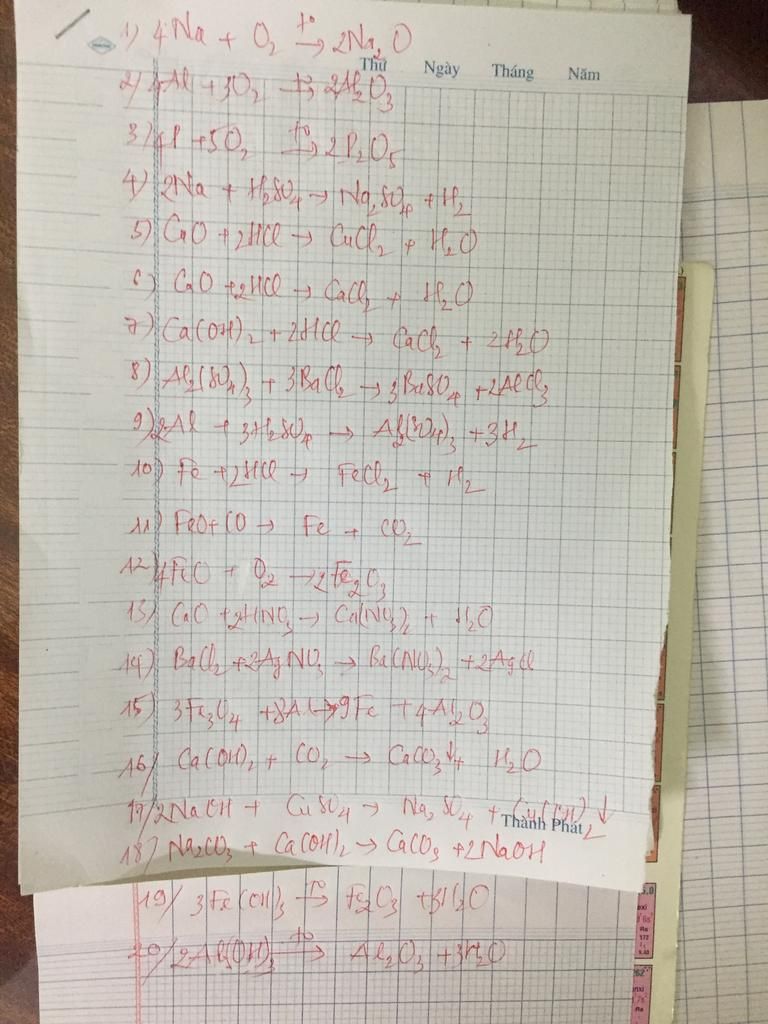 1) 4Na + O₂ –t°→ 2Na₂O
Thứ Ngày Tháng Năm
2) 4Al + 3O₂ –t°→ 2Al₂O₃
3) 4P + 5O₂ –t°→ 2P₂O₅
4) 2Na + H₂SO₄ → Na₂SO₄ + H₂
5) CuO + 2HCl → CuCl₂ + H₂O
6) CaO + 2HCl → CaCl₂ + H₂O
7) Ca(OH)₂ + 2HCl → CaCl₂ + 2H₂O
8) Al₂(SO₄)₃ + 3BaCl₂ → 3BaSO₄ + 2AlCl₃
9) 2Al + 3H₂SO₄ → Al₂(SO₄)₃ + 3H₂
10) Fe + 2HCl → FeCl₂ + H₂
11) FeO + CO → Fe + CO₂
12) 4FeO + O₂ → 2Fe₂O₃
13) CaO + 2HNO₃ → Ca(NO₃)₂ + H₂O
14) BaCl₂ + 2AgNO₃ → Ba(NO₃)₂ + 2AgCl
15) 3Fe₃O₄ + 8Al → 9Fe + 4Al₂O₃
16/ Ca(OH)₂ + CO₂ → CaCO₃↓ + H₂O
17/ 2NaOH + CuSO₄ → Na₂SO₄ + Cu(OH)₂↓
Thành Phát
18) Na₂CO₃ + Ca(OH)₂ → CaCO₃ + 2NaOH
19/ 3Fe(OH)₃ –t°→ Fe₂O₃ + 3H₂O
20/ 2Al(OH)₃ –t°→ Al₂O₃ + 3H₂O